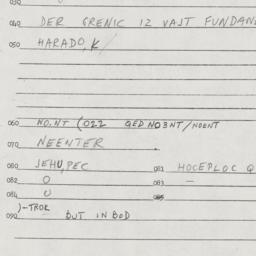 030
040 DER GRENIC 12 VAST FUNDAN
050 HARADO,K/
060 NO.NT (022 QED NOBNT/NOENT
070 NEENTER
080 JEHU,PEC 081 HOCEPLOC Q
082 O 083 —
084 U 085
)-TROR
090 BUT IN BOD